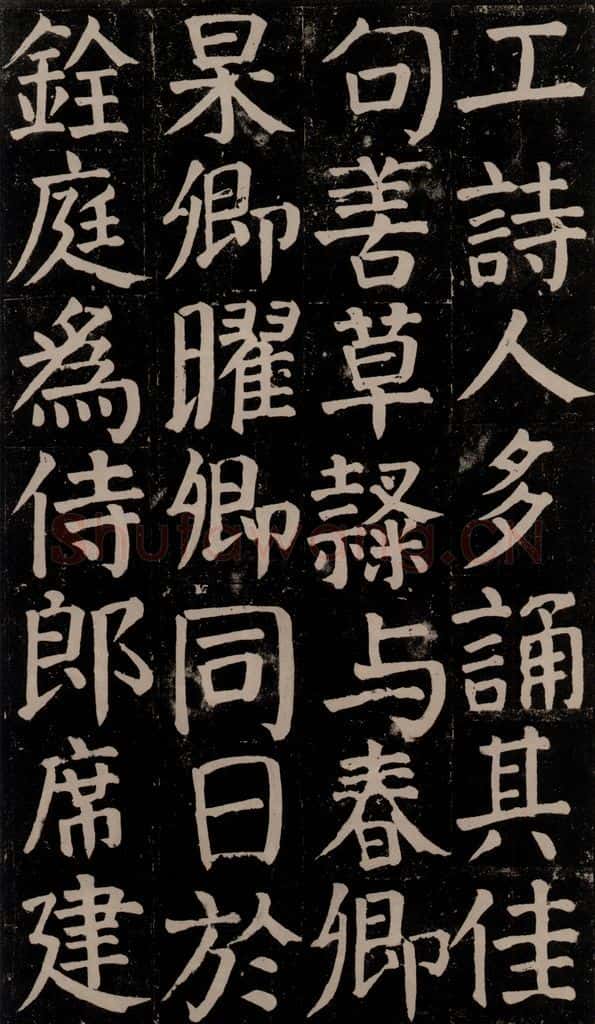 工詩人多誦其佳
句善草隸与春卿
杲卿曜卿同日於
銓庭為侍郎席建
Shufawang.CN